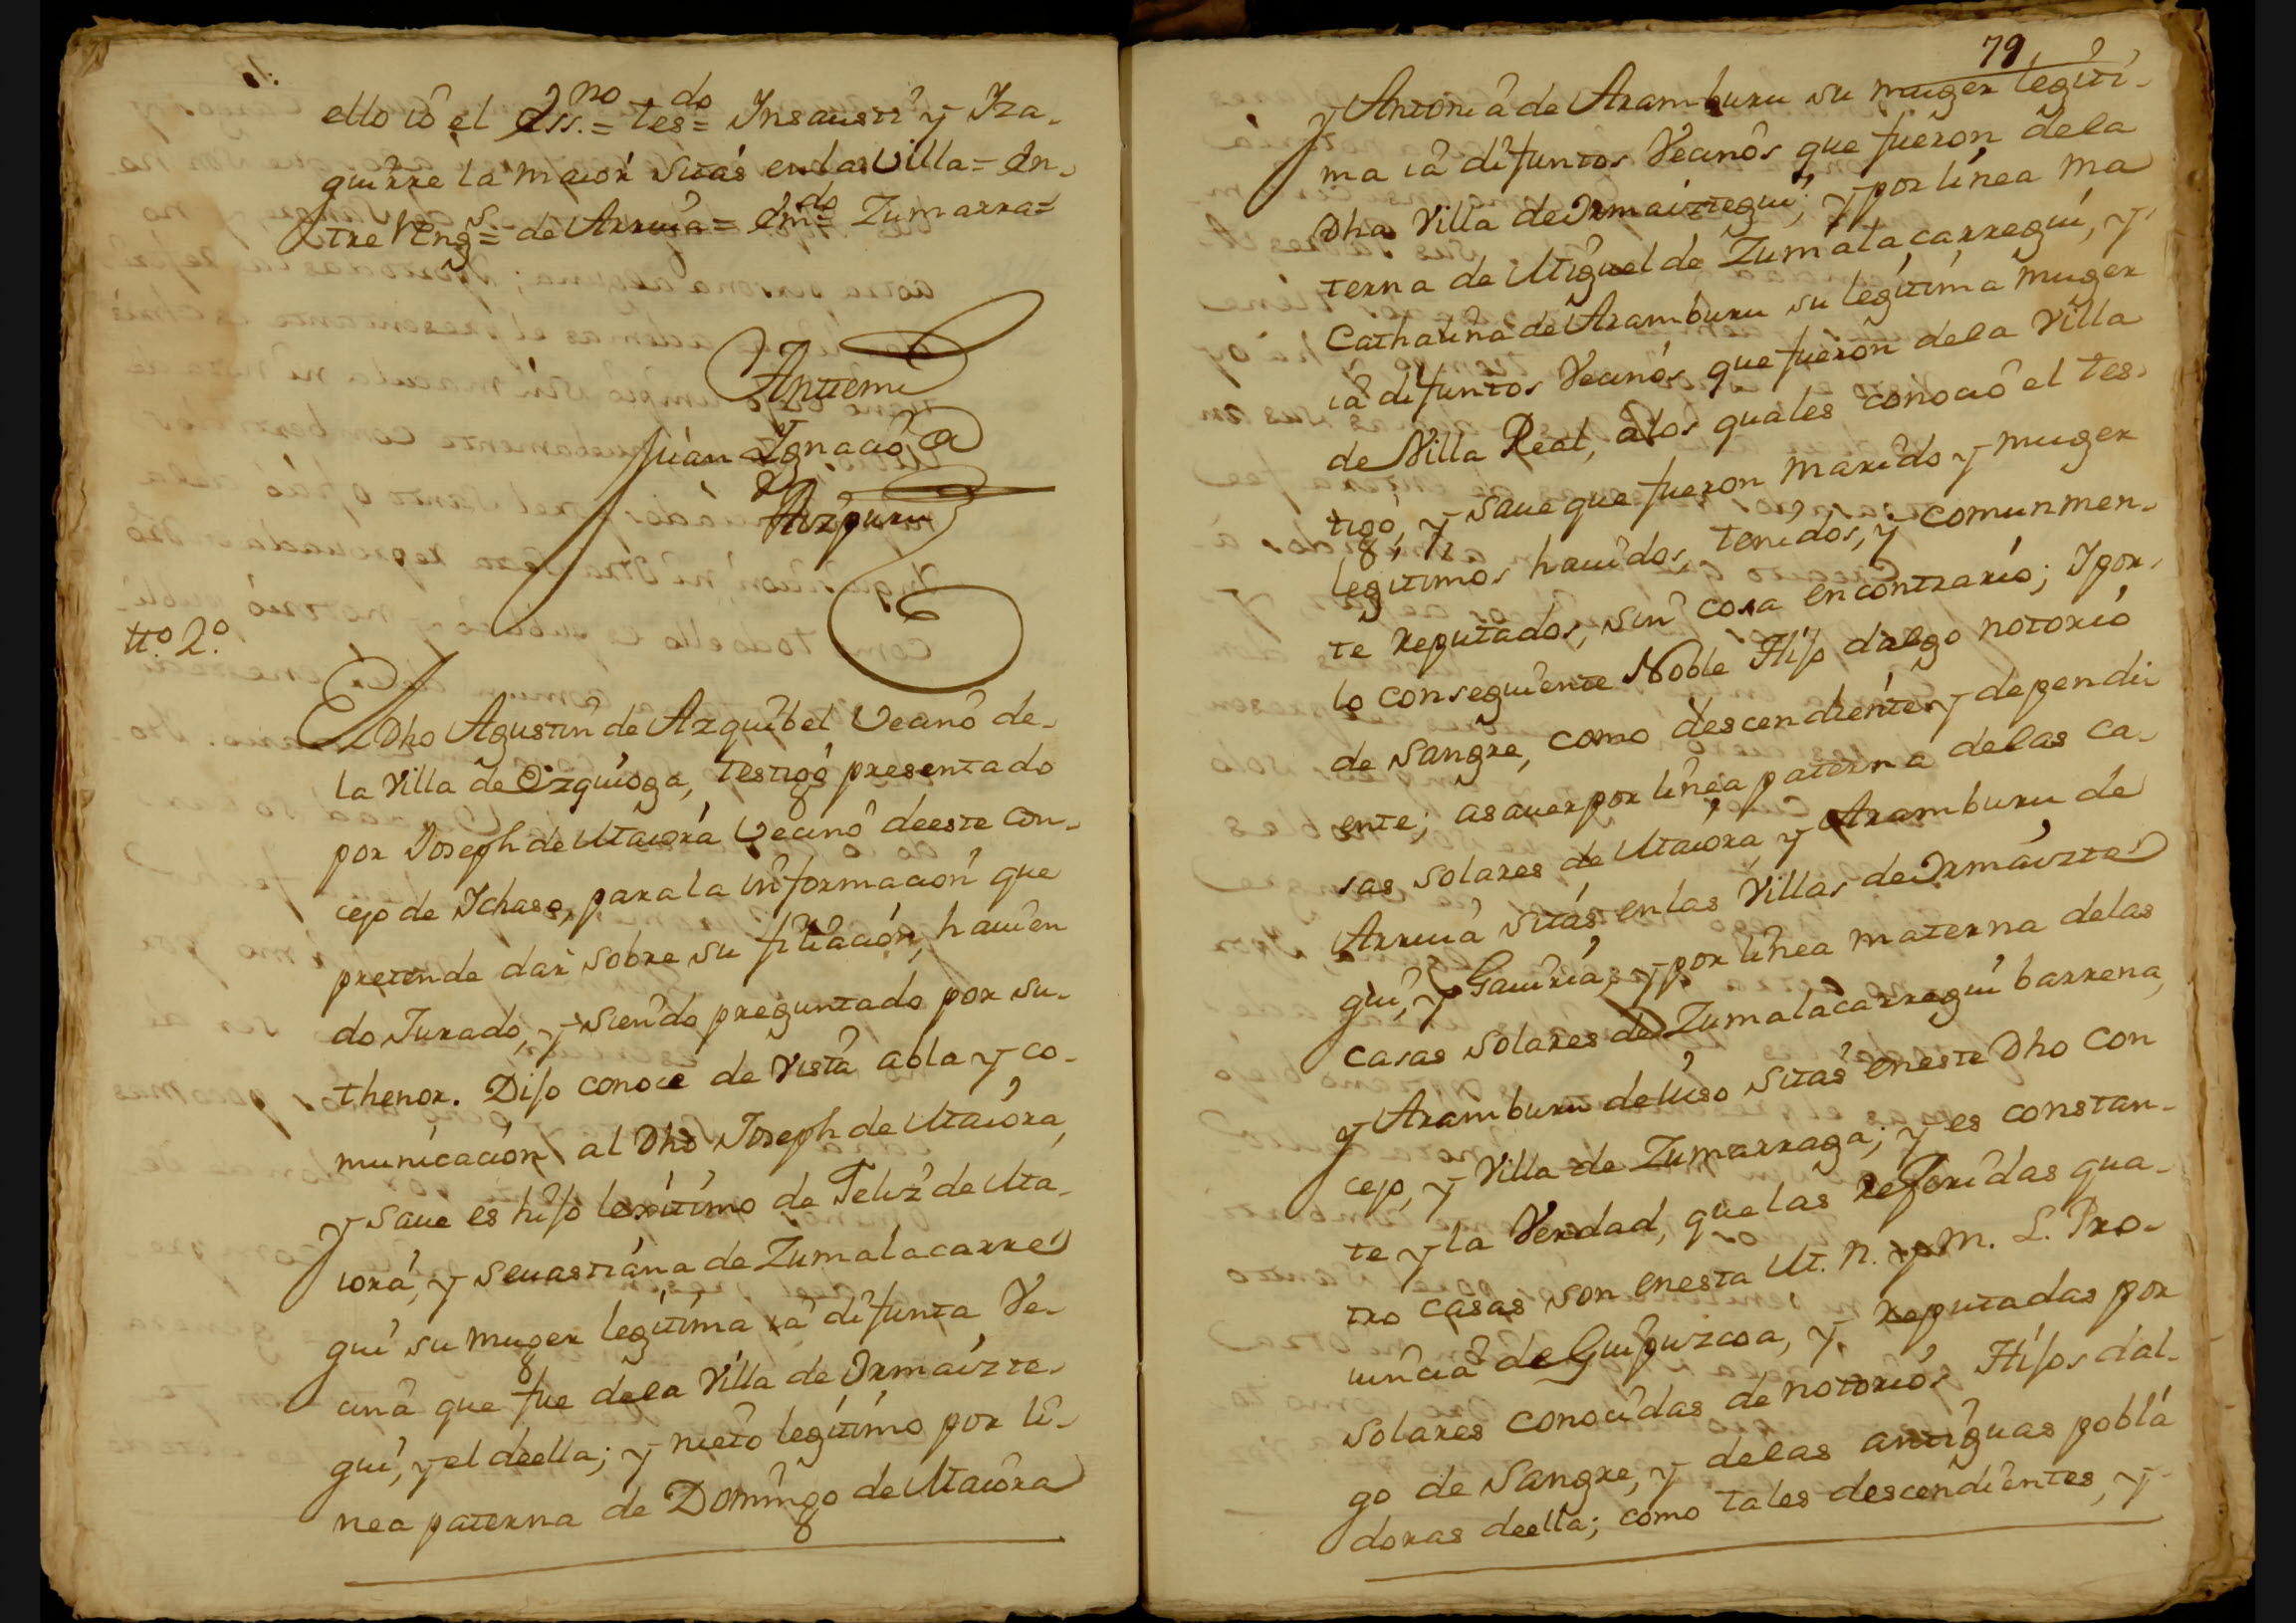 ello io el Ess.no = tes.do = Insausti y Iza-
guirre la maior sitas en la Villa = En-
tre Reng.s = de Arrua = Em.do = Zumarra =
Antemi
Juan Ignacio de
Azpuru
tt.o 2.o
El Dho Agustin de Azguibel Vecino de-
la Villa de Ezquioga, testigo presentado
por Joseph de Maiora Vecino de este Con-
cejo de Ichaso, para la informacion que
pretende dar sobre su filiacion, havien
do Jurado, y siendo preguntado por su-
thenor. Dijo conoce de vista abla y co-
municacion al Dho Joseph de Maiora,
y save es hijo lexitimo de Feliz de Ma-
iora, y Sevastiana de Zumalacarre
gui su muger legitima ia difunta Ve-
cina que fue dela Villa de Ormaizte-
gui, y el de ella; y nieto legitimo por li-
nea paterna de Domingo de Maiora
79
y Antonia de Aramburu su muger legiti-
ma ia difuntos Vecinos que fueron dela
Dha Villa de Ormaiztegui; y por linea ma
terna de Miguel de Zumalacarregui, y
Cathalina de Aramburu su legitima muger
ia difuntos Vecinos que fueron dela Villa
de Villa Real, alos quales conocio el tes-
tigo, y save que fueron marido y muger
legitimos havidos, tenidos, y comunmen-
te reputados, sin cosa en contrario; I por
lo consequiente Noble Hijo dalgo notorio
de sangre, como descendiente y dependi
ente; asaver por linea paterna delas ca-
sas solares de Maiora y Aramburu de
Arrua sitas en las Villas de Ormaizte
gui, y Gaviria, y por linea materna delas
casas solares de Zumalacarregui barrena,
y Aramburu de luso sitas en este Dho Con
cejo, y Villa de Zumarraga; y es constan-
te y la Verdad, que las referidas qua-
tro casas son en esta M. N. y M. L. Pro-
vincia de Guipuzcoa, y reputadas por
solares conocidas de notorios Hijos dal-
go de Sangre, y delas antiguas pobla
doras de ella; como tales descendientes, y